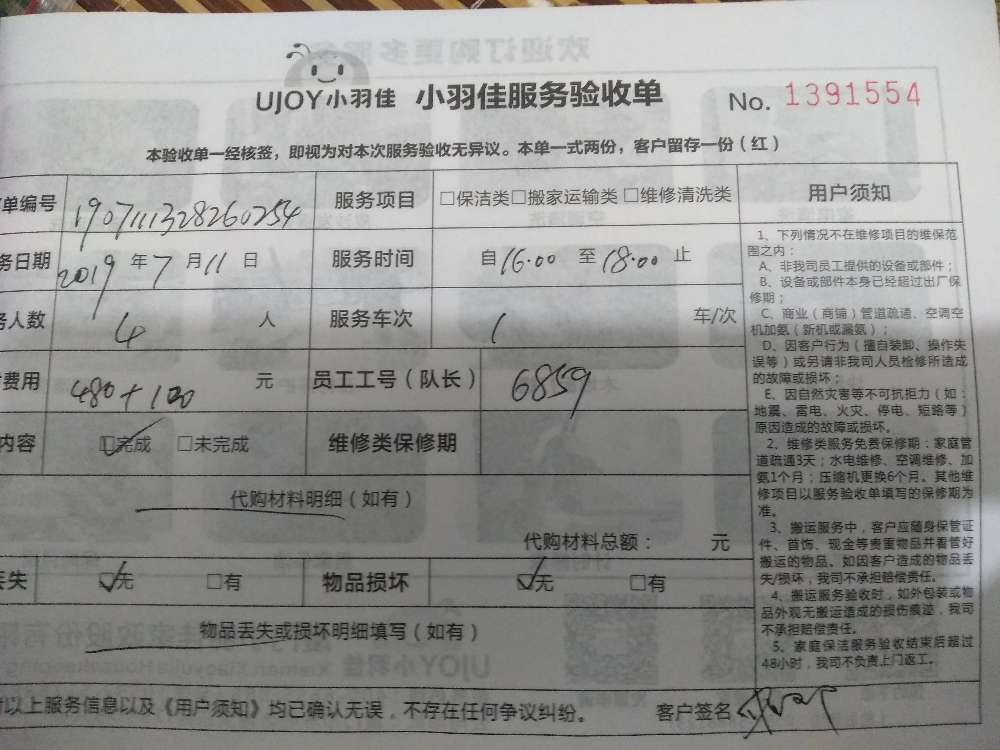 UJOY小羽佳 小羽佳服务验收单 No. 1391554
本验收单一经核签，即视为对本次服务验收无异议。本单一式两份，客户留存一份（红）
单编号 1907111328260254 服务项目 □保洁类□搬家运输类 □维修清洗类
务日期 2019 年 7 月 11 日 服务时间 自 16:00 至 18:00 止
人数 4 人 服务车次 1 车/次
费用 480+100 元 员工工号（队长） 6859
内容 ☑完成 □未完成 维修类保修期
代购材料明细（如有）
代购材料总额： 元
丢失 ☑无 □有 物品损坏 ☑无 □有
物品丢失或损坏明细填写（如有）
以上服务信息以及《用户须知》均已确认无误，不存在任何争议纠纷。 客户签名
用户须知
1、下列情况不在维修项目的维保范
围之内：
A、非我司员工提供的设备或部件；
B、设备或部件本身已经超过出厂保
修期；
C、商业（商铺）管道疏通、空调空
机加氨（新机或漏氨）；
D、因客户行为（擅自装卸、操作失
误等）或另请非我司人员检修所造成
的故障或损坏；
E、因自然灾害等不可抗拒力（如：
地震、雷电、火灾、停电、短路等）
原因造成的故障或损坏。
2、维修类服务免费保修期：家庭管
道疏通3天；水电维修、空调维修、加
氨1个月；压缩机更换6个月。其他维
修项目以服务验收单填写的保修期为
准。
3、搬运服务中，客户应随身保管证
件、首饰、现金等贵重物品并看管好
搬运的物品。如因客户造成的物品丢
失/损坏，我司不承担赔偿责任。
4、搬运服务验收时，如外包装或物
品外观无搬运造成的损伤痕迹，我司
不承担赔偿责任。
5、家庭保洁服务验收结束后超过
48小时，我司不负责上门返工。